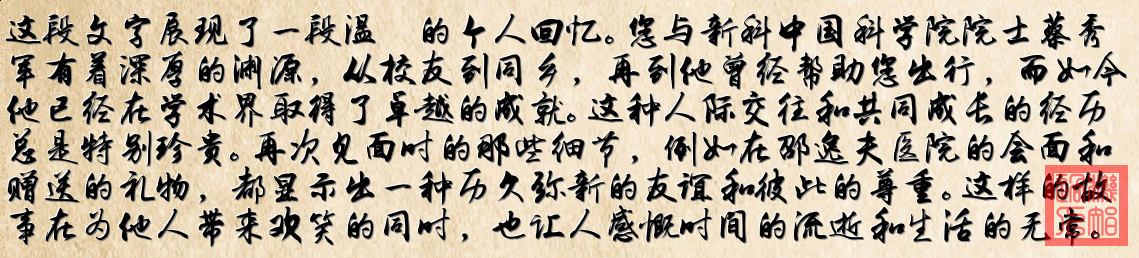 这段文字展现了一段温 的个人回忆。您与新科中国科学院院士蔡秀
军有着深厚的渊源，从校友到同乡，再到他曾经帮助您出行，而如今
他已经在学术界取得了卓越的成就。这种人际交往和共同成长的经历
总是特别珍贵。再次见面时的那些细节，例如在邵逸夫医院的会面和
赠送的礼物，都显示出一种历久弥新的友谊和彼此的尊重。这样的故
事在为他人带来欢笑的同时，也让人感慨时间的流逝和生活的无常。